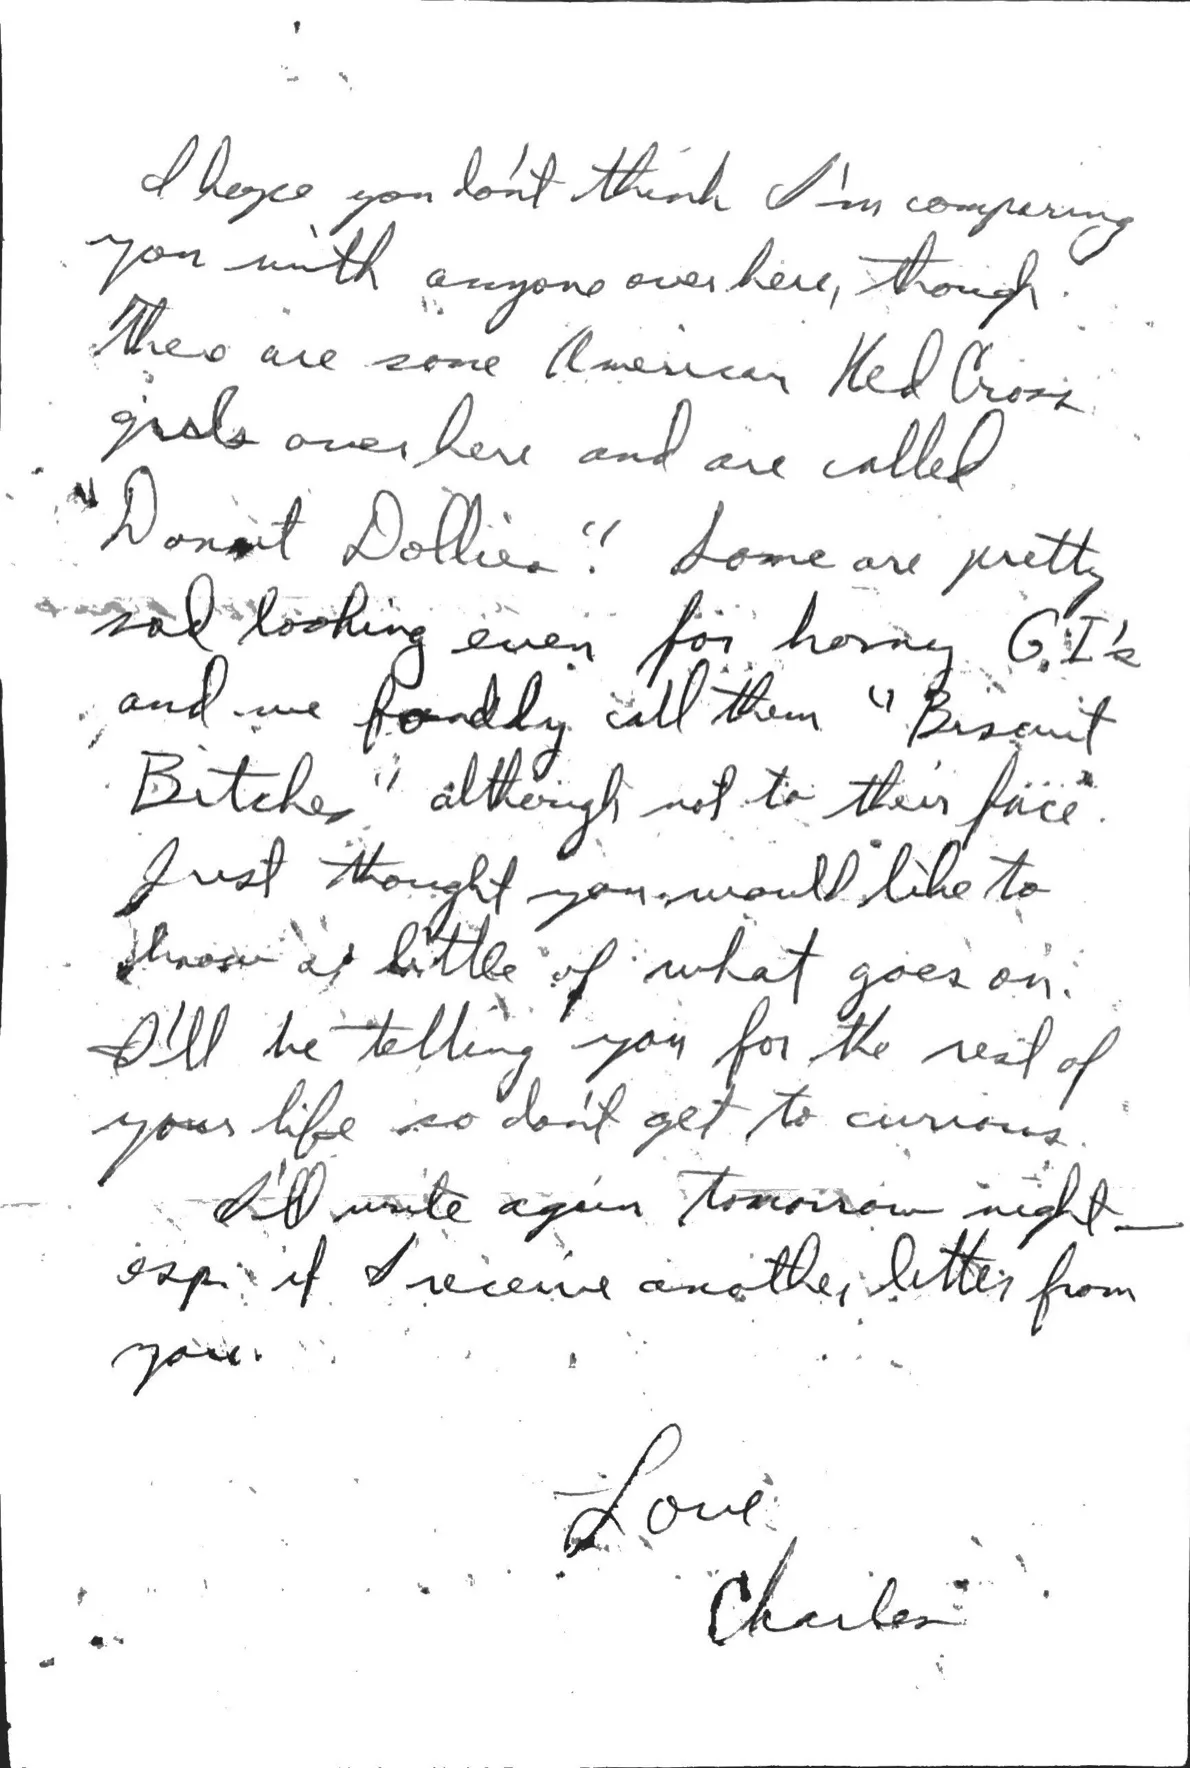 I hope you don't think I'm comparing
you with anyone over here, though.
There are some American Red Cross
girls over here and are called
"Donut Dollies". Some are pretty
sad looking even for horny G.I's
and we fondly call them "Biscuit
Bitches" although not to their face.
Just thought you would like to
know a little of what goes on.
I'll be telling you for the rest of
your life so don't get to curious.
I'll write again tomorrow night—
esp. if I receive another letter from
you.
Love
Charles